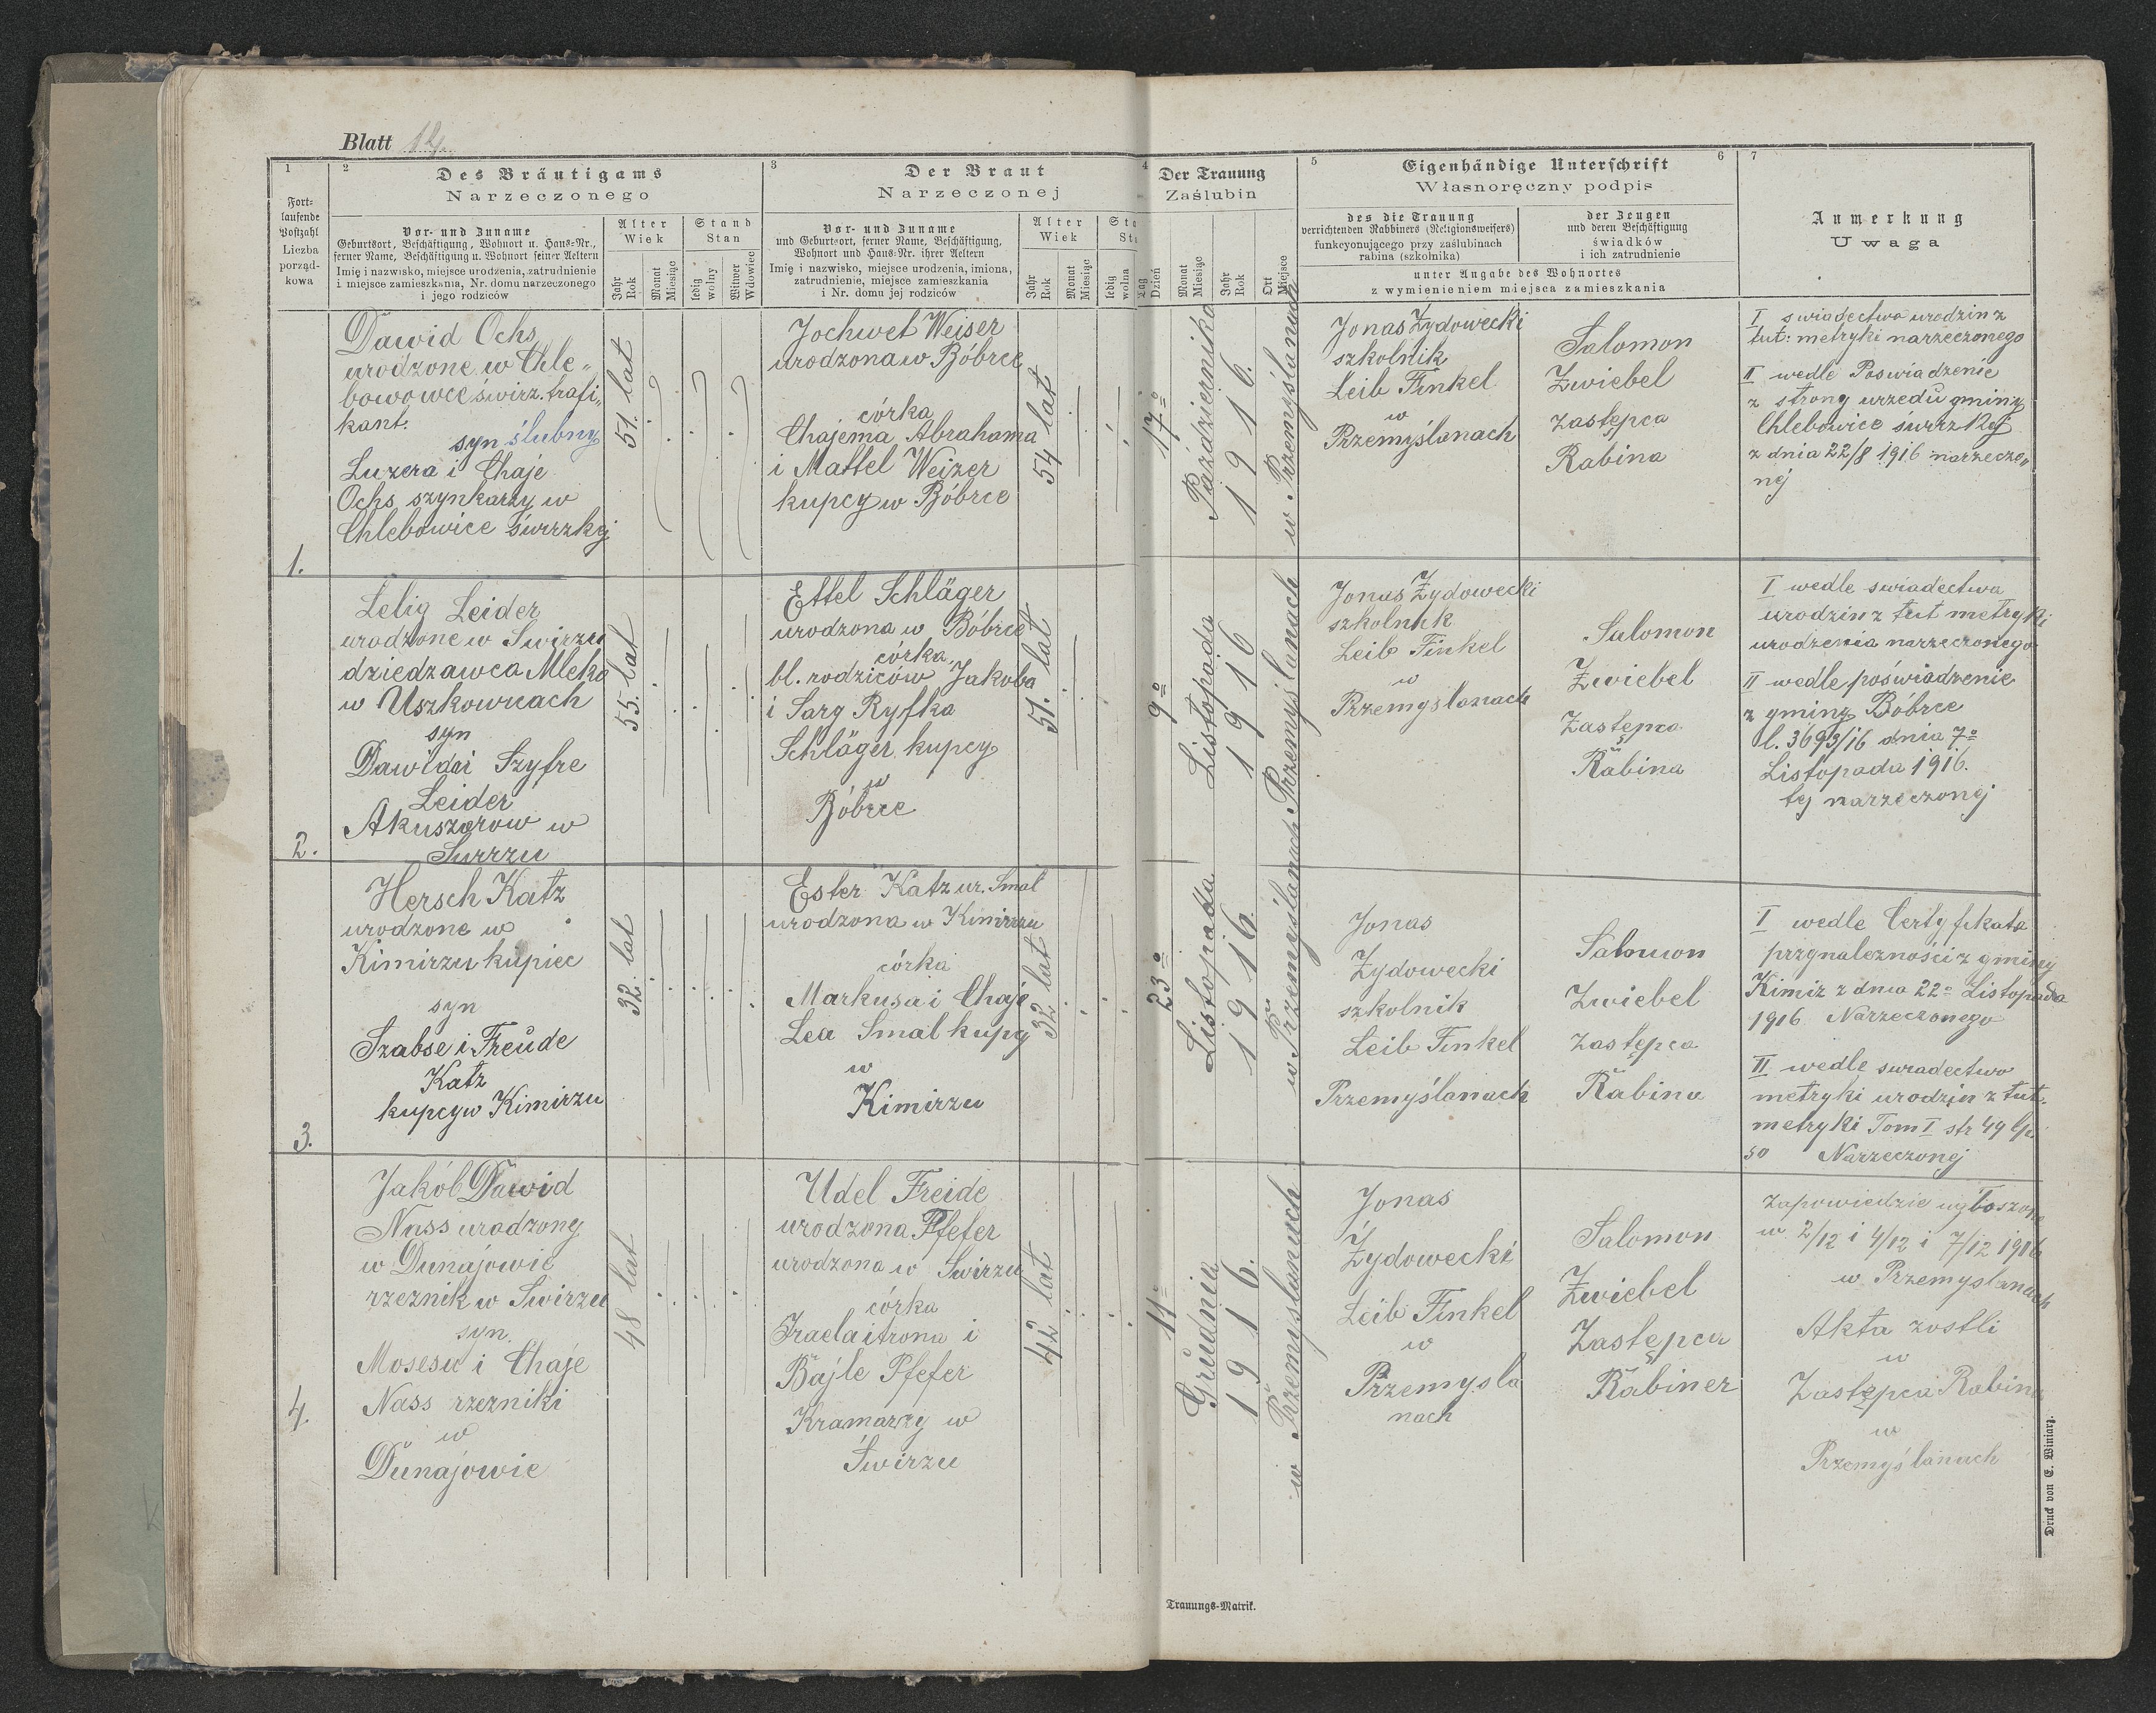 Blatt 12.
1
Fort-
laufende
Postzahl
Liczba
porząd-
kowa
2
Des Bräutigams
Narzeczonego
Vor- und Zuname
Geburtsort, Beschäftigung, Wohnort u. Haus-Nr.,
ferner Name, Beschäftigung u. Wohnort seiner Aeltern
Imię i nazwisko, miejsce urodzenia, zatrudnienie
i miejsce zamieszkania, Nr. domu narzeczonego
i jego rodziców
Alter
Wiek
Jahr
Rok
Monat
Miesiąc
Stand
Stan
ledig
wolny
Witwer
Wdowiec
3
Der Braut
Narzeczonej
Vor- und Zuname
und Geburtsort, ferner Name, Beschäftigung,
Wohnort und Haus-Nr. ihrer Aeltern
Imię i nazwisko, miejsce urodzenia, imiona,
zatrudnienie, miejsce zamieszkania
i Nr. domu jej rodziców
Alter
Wiek
Jahr
Rok
Monat
Miesiąc
Sta
Sta
ledig
wolna
4
Der Trauung
Zaślubin
Tag
Dzień
Monat
Miesiąc
Jahr
Rok
Ort
Miejsce
5
Eigenhändige Unterschrift
6
Własnoręczny podpis
des die Trauung
verrichtenden Rabbiners (Religionsweisers)
funkcyonującego przy zaślubinach
rabina (szkolnika)
der Zeugen
und deren Beschäftigung
świadków
i ich zatrudnienie
unter Angabe des Wohnortes
z wymienieniem miejsca zamieszkania
7
Anmerkung
Uwaga
1.
Dawid Ochs
urodzone w Chle„
bowowce świrz. trafi„
kant.
syn ślubny
Luzera i Chaje
Ochs szynkarzy w
Chlebowice świrzkej
51. lat
Jochwet Weiser
urodzona w Bóbrce
córka
Chajema Abrahama
i Mattel Weizer
kupcy w Bóbrce
54 lat
17º
Października
1916.
w Przemyślanach
Jonas Żydowecki
szkolnik
Leib Finkel
w
Przemyślanach
Salomon
Zwiebel
Zastępca
Rabina
I swiadectwo urodzin z
tut: metryki narzeczonego
II wedle Poswiadzenie
z strony urzedu gminy
Chlebowice świrzkej
z dnia 22/8 1916 narzeczo„
nej
2.
Selig Leider
urodzone w Swirzu
dziedzawca Mleka
w Uszkowicach
syn
Dawida i Szyfre
Leider
Akuszorow w
Swirzu
55. lat
Ettel Schläger
urodzona w Bóbrce
córka
bl. rodziców Jakoba
i Sary Ryfka
Schläger kupcy
w
Bóbrce
51. lat
9º
Listopada
1916
Przemyślanach
Jonas Żydowecki
szkolnik
Leib Finkel
w
Przemyslanach
Salomon
Zwiebel
Zastępca
Rabina
I wedle swiadectwa
urodzin z tut metryki
urodzenia narzeczonego
II wedle poświadzenie
z gminy Bóbrce
l. 3693/16 dnia 7º
Listopada 1916.
tej narzeczonej
3.
Hersch Katz
urodzone w
Kimirzu kupiec
syn
Szabse i Freude
Katz
kupcy w Kimirzu
32. lat
Ester Katz ur. Smal
urodzona w Kimirzu
córka
Markusa i Chaje
Lea Smal kupcy
w
Kimirzu
32 lat
23º
Listopada
1916.
w Przemyślanach
Jonas
Żydowecki
szkolnik
Leib Finkel
Przemyślanach
Salomon
Zwiebel
Zastępca
Rabina
I wedle Certyfikata
przynalezności z gminy
Kimiz z dnia 22º Listopada
1916 Narzeczonego
II wedle swiadectwo
metryki urodzin z tut.
metryki Tom I str 49 lp.
50 Narzeczonej
4.
Jakób Dawid
Nass urodzony
w Dunajowie
rzeznik w Swirzu
syn.
Mosesa i Chaje
Nass rzezniki
w
Dunajowie
48 lat
Udel Freide
urodzona Pfefer
urodzona w Swirzu
córka
Izraela itrona i
Bajle Pfefer
Kramarzy w
Świrzu
42 lat
11º
Grudnia
1916.
w Przemyslanach
Jonas
Żydowecki
Leib Finkel
w
Przemysla
nach
Salomon
Zwiebel
Zastępca
Rabiner
Zapowiedzie ugłoszone
w 2/12 i 4/12 i 7/12 1916
w Przemyslanach
Akta zostli
w
Zastępca Rabina
w
Przemyślanach
Druck von E. Winiarz.
Trauungs-Matrik.